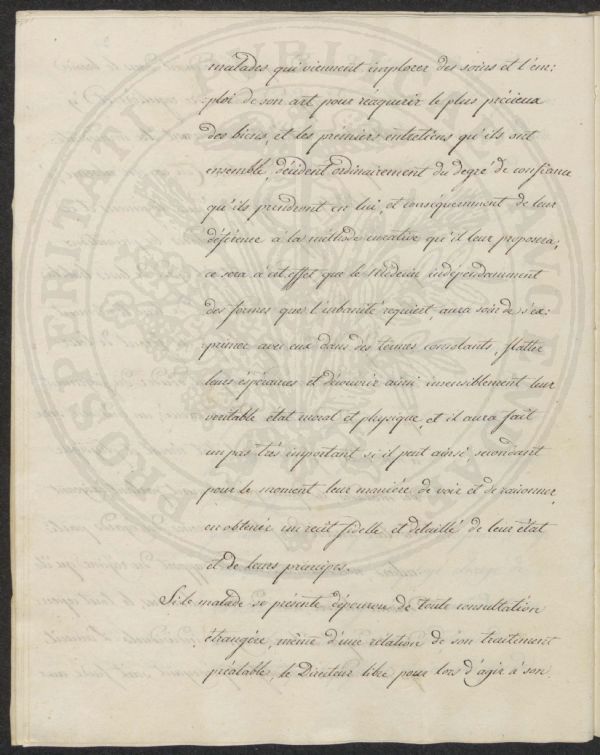 malades qui viennent implorer des soins et l'em:
:ploi de son art pour réaquerir le plus précieux
des biens, et les premiers entretiens qu'ils ont
ensemble, décident ordinairement du degré de confiance
qu'ils prendront en lui, et conséquemment de leur
déférence à la méthode curative qu'il leur proposera;
ce sera à cet effet que le Médecin indépendamment
des formes que l'urbanité requiert, aura soin de s'ex:
primer avec eux dans des termes consolants, flatter
leurs espérances et découvrir ainsi insensiblement leur
veritable etat moral et physique, et il aura fait
un pas très important si il peut ainsi, secondant
pour le moment leur manière de voir et de raisonner,
en obtenir un recit fidelle et detaillé de leur état
et de leurs principes.
Si le malade se présente dépourvu de toute consultation
étrangère, même d'une rélation de son traitement
préalable, le Directeur libre pour lors d'agir à son
PROSPERITATI PUBLICAE